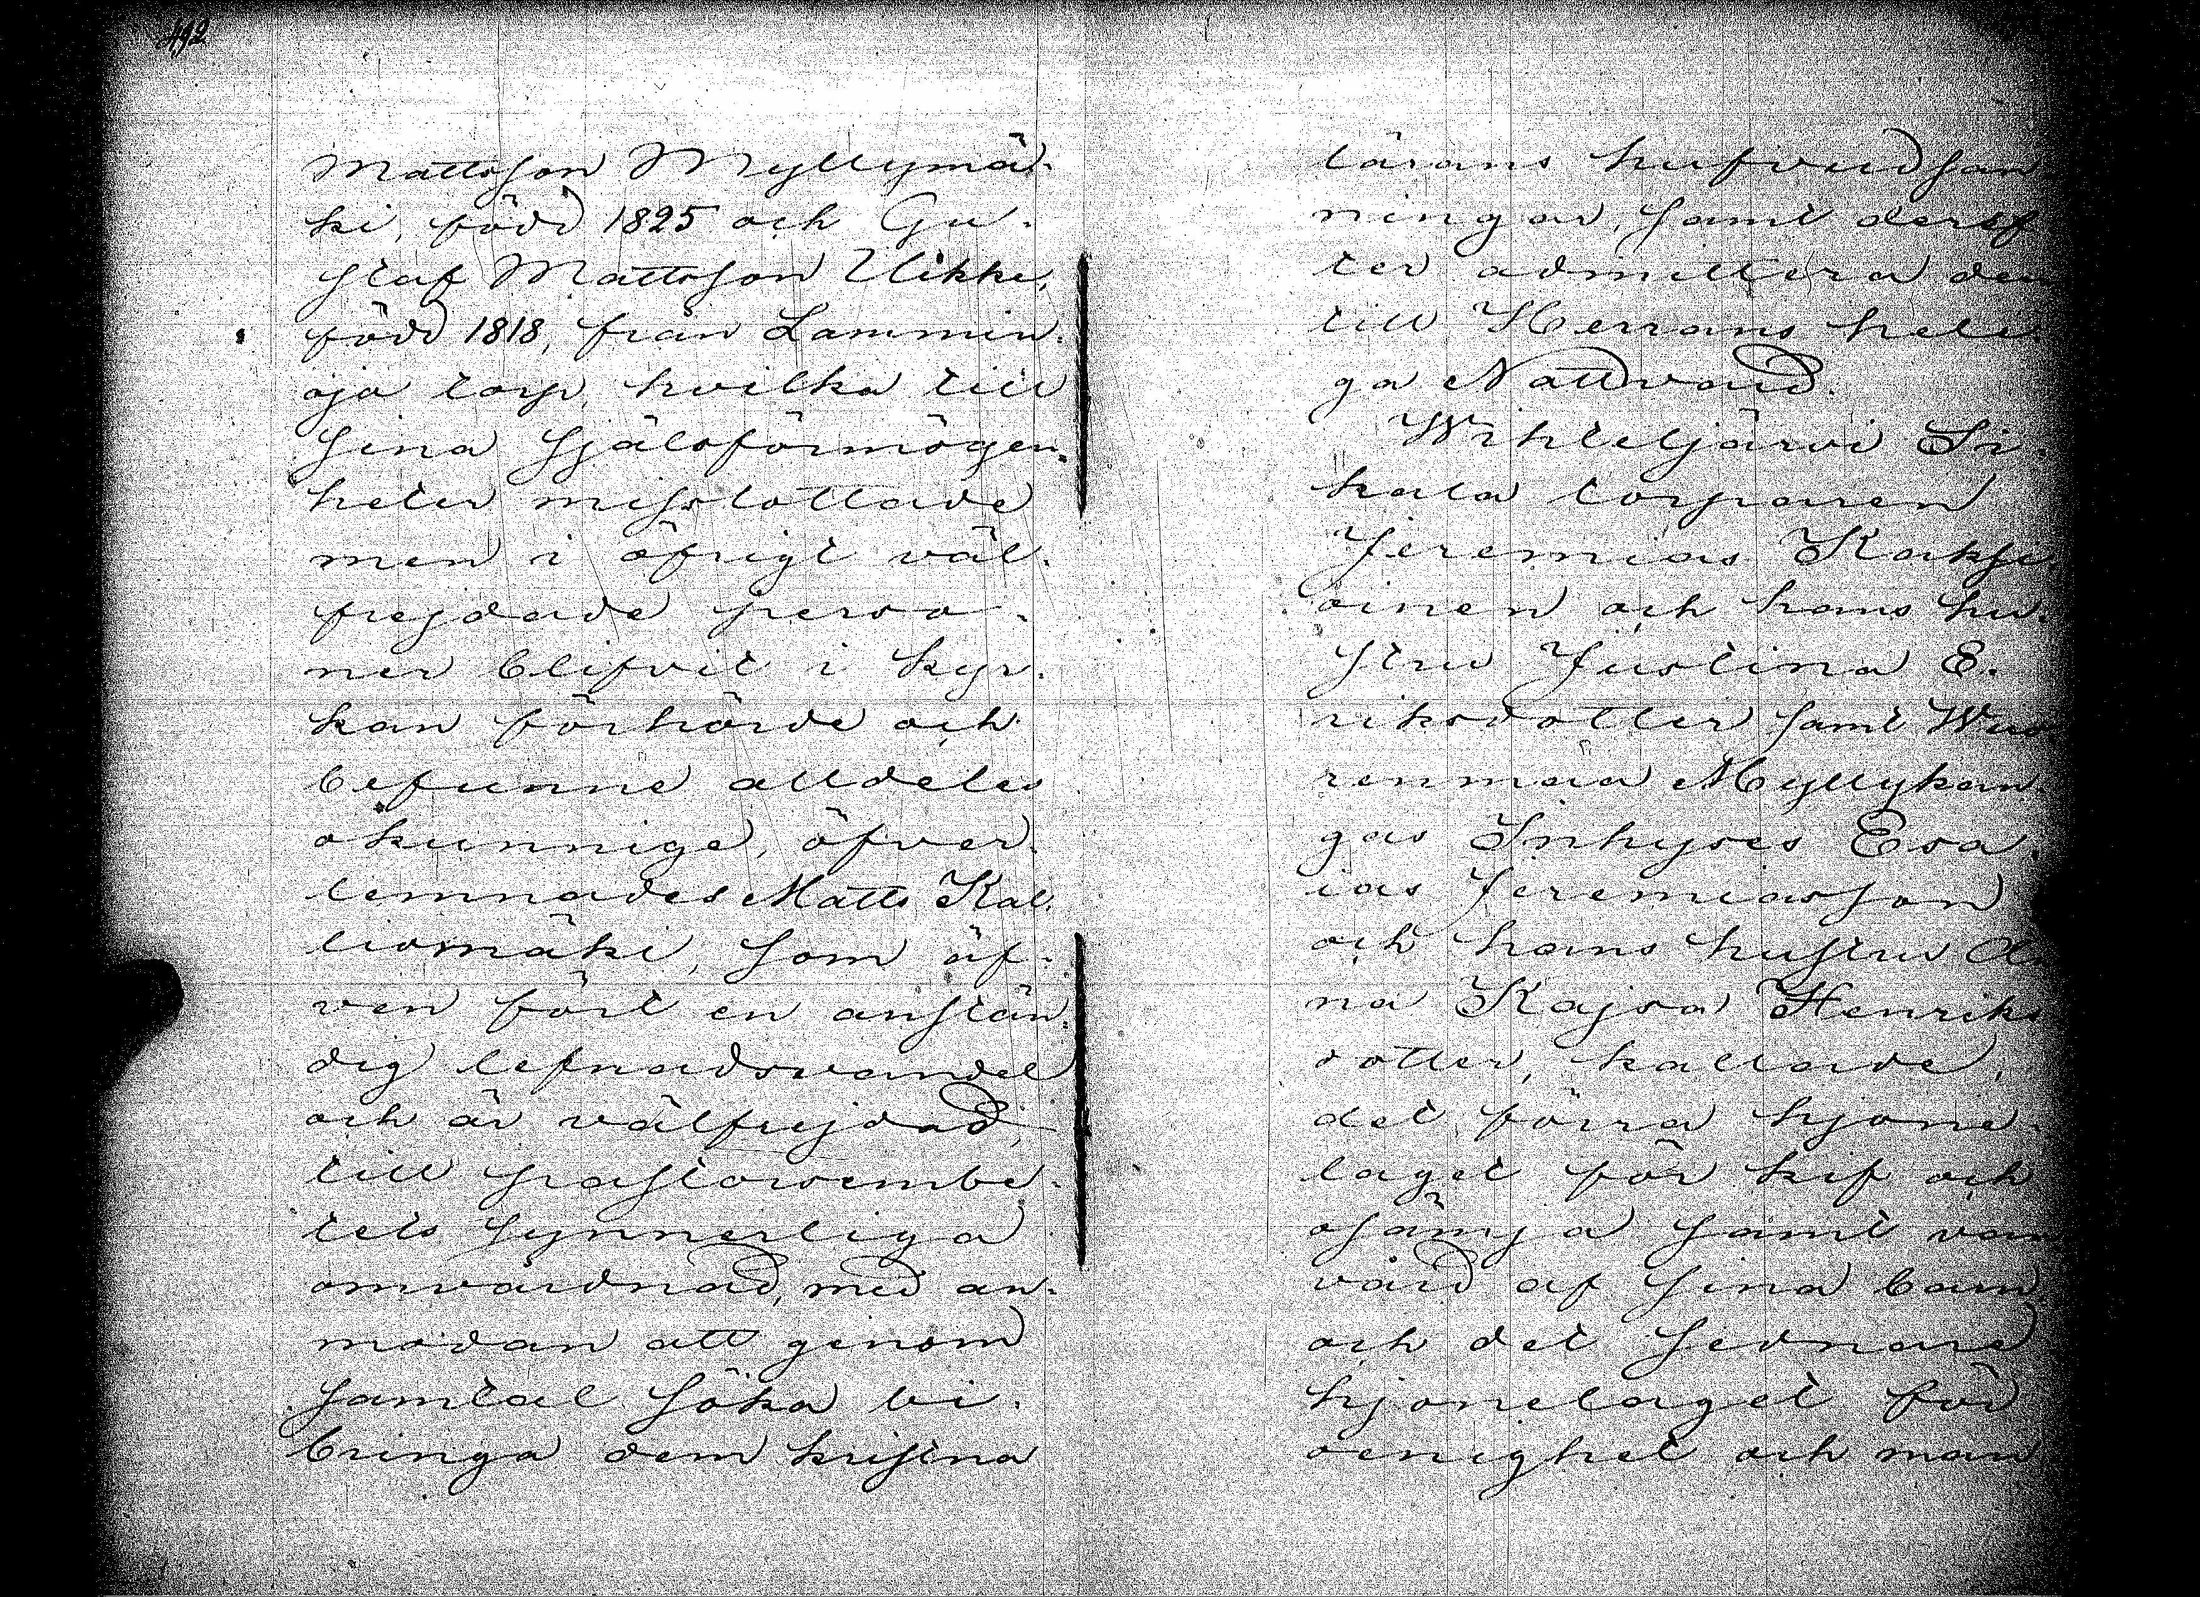 492
Mattsson Myllymä-
ki, född 1825 och Gu-
staf Mattsson Ukko,
född 1818, från Lammin-
oja torp, hvilka till
sina själsförmögen-
heter misslottade
men i öfrigt väl-
frejdade perso-
ner blifvit i kyr-
kan förhörde och
befunne alldeles
okunnige, öfver-
lemnades Matts Kal-
liomäki, som äf-
ven fört en anstän-
dig lefnadsvandel
och är välfrejdad,
till pastorsembe-
tets synnerliga
omvårdnad, med an-
modan att genom
samtal söka bi-
bringa dem kristna
lärans hufvudsan
ningar, samt deref
ter admittera dem
till Herrans heli-
ga Nattvard.
Wihteljärvi Si-
kala torparen
Jeremias Kakse-
oinen och hans hu-
stru Justina E-
riksdotter samt Wuo
renmaa Myllykan-
gas Inhyses Esa-
ias Jeremiasson
och hans hustru An
na Kajsa Henriks
dotter, kallade,
det förra hjone-
laget för kif och
osämja samt van
vård af sina barn
och det sednare
hjonelaget för
oenighet och man